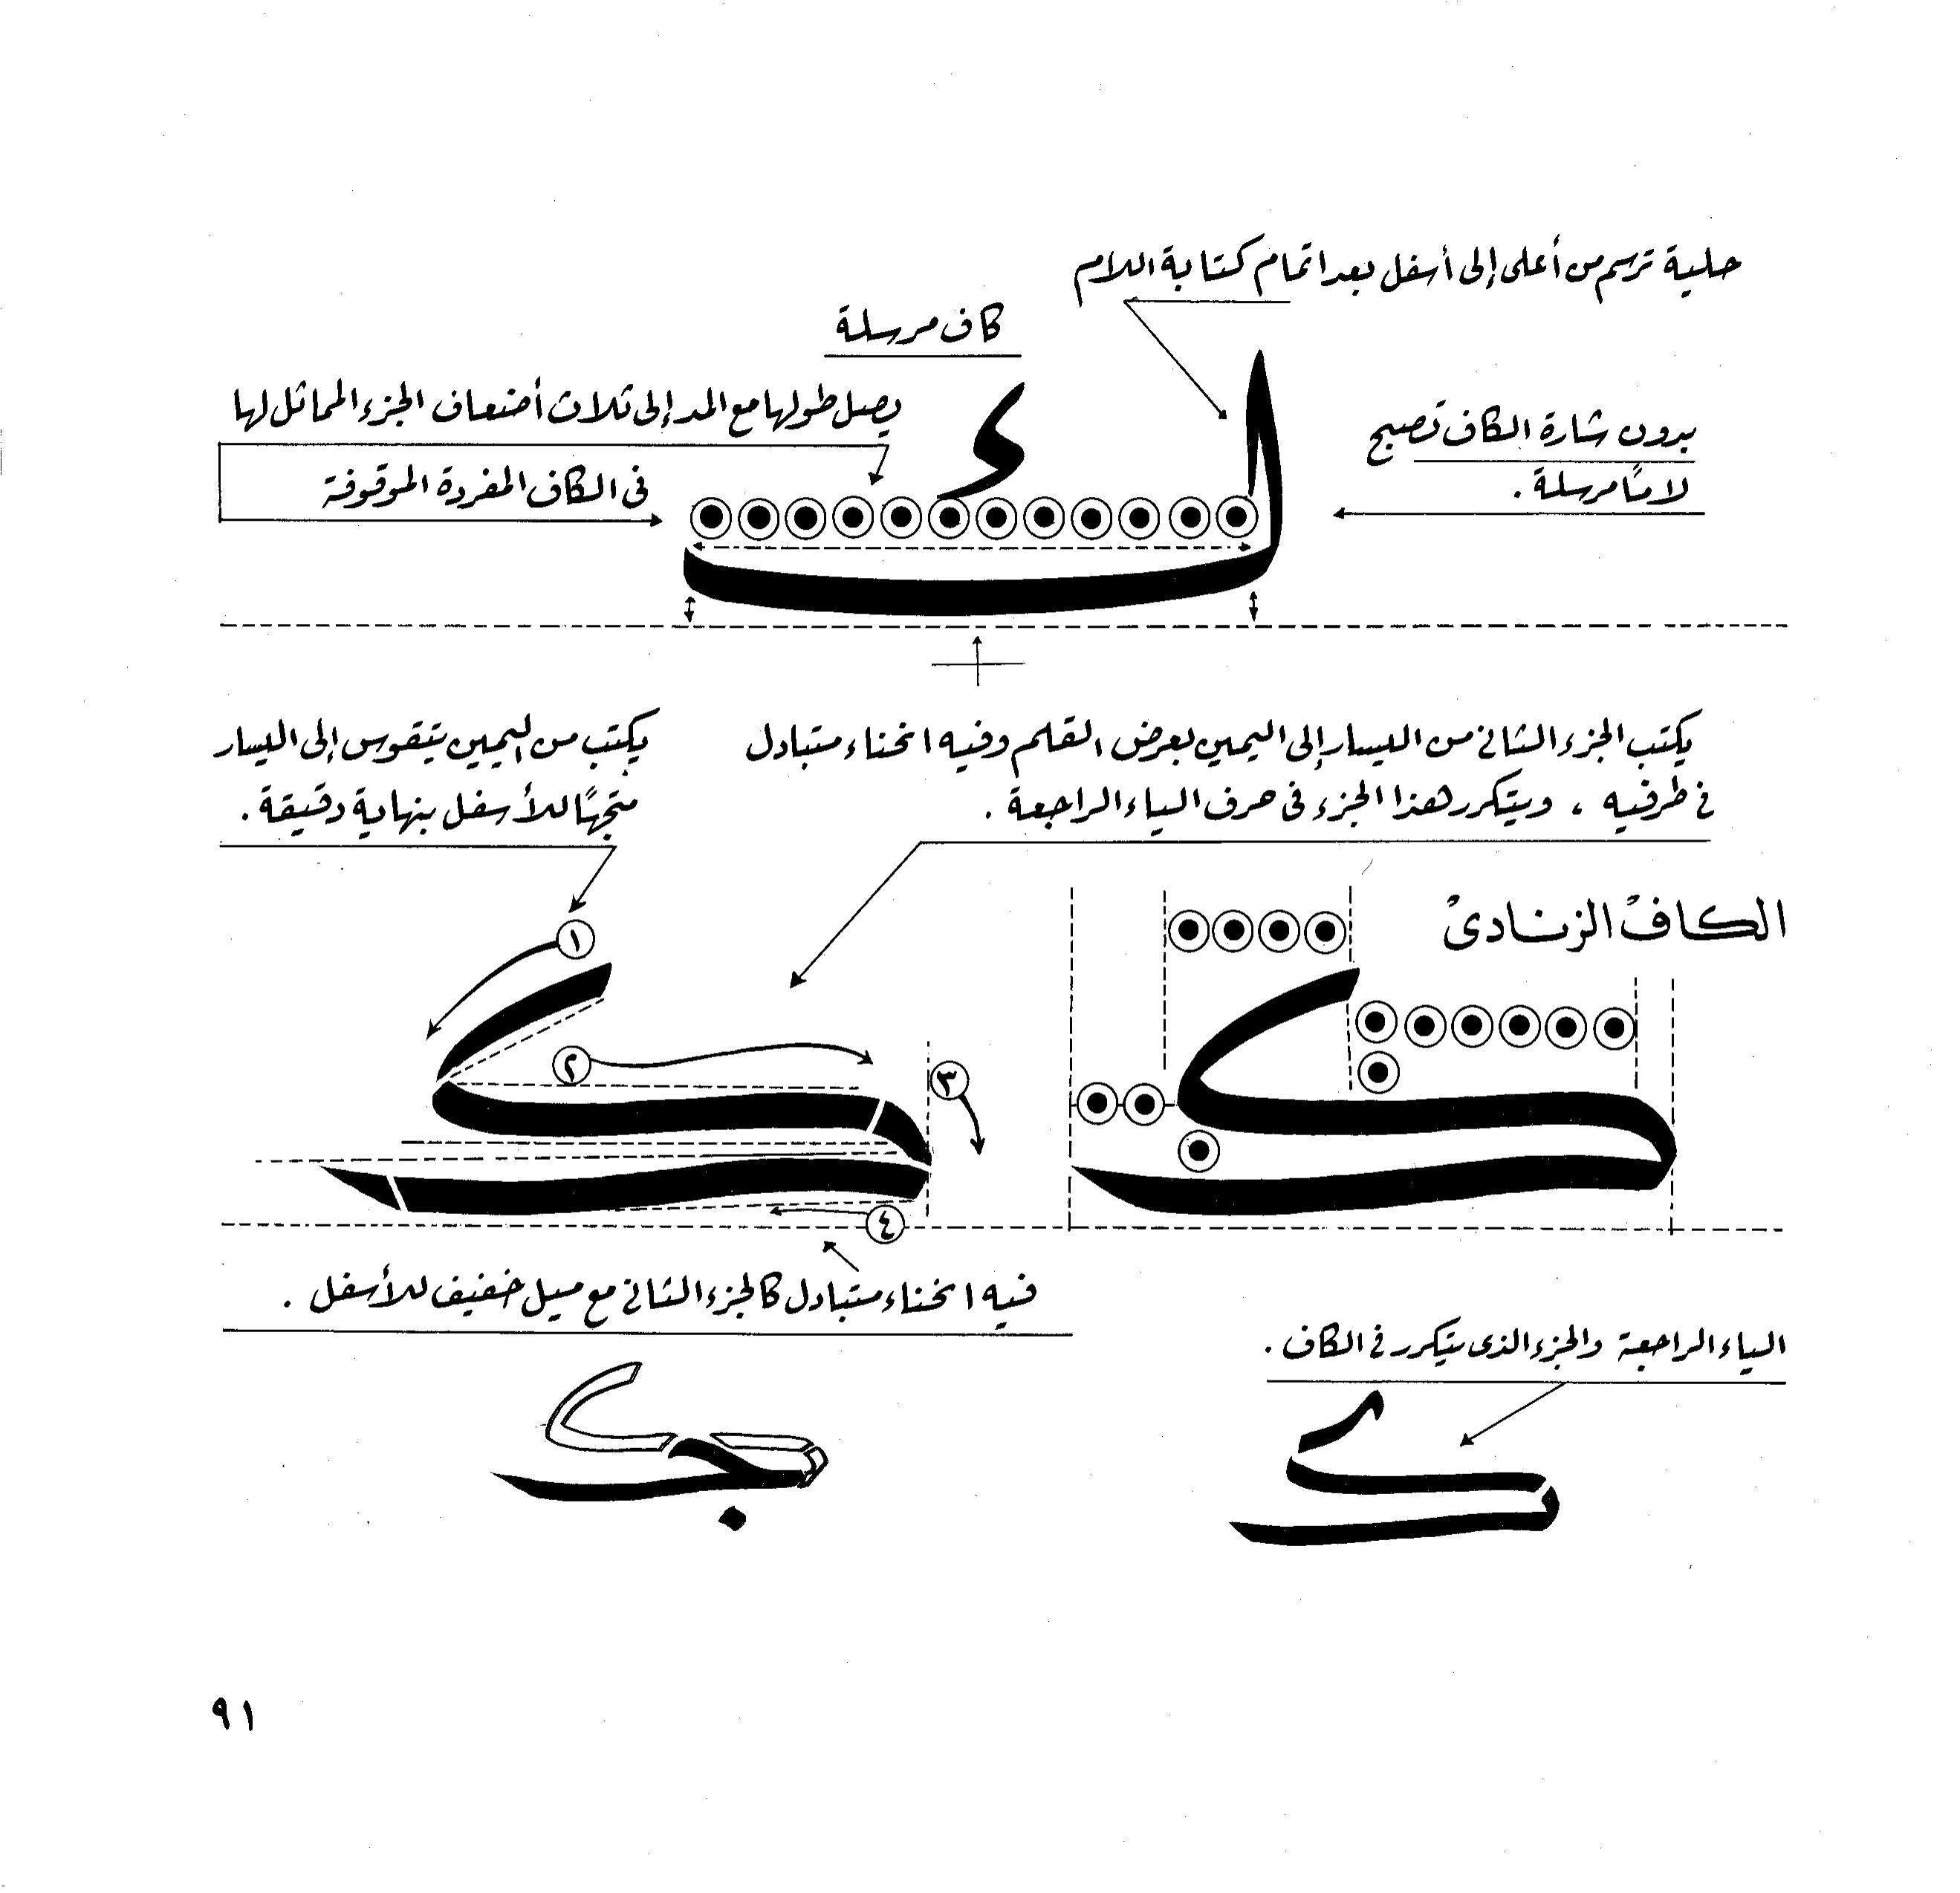 حلية ترسم من أعلى إلى أسفل بعد اتمام كتابة اللام
كاف مرسلة
يصل طولها مع المد إلى ثلاث أضعاف الجزء المماثل لها
فى الكاف المفردة الموقوفة
بدون شارة الكاف تصبح
لامًا مرسلة .
يكتب الجزء الثانى من اليسار إلى اليمين بعرض القلم وفيه انحناء متبادل
فى طرفيه ، ويتكرر هذا الجزء فى حرف الياء الراجعة .
يكتب من اليمين يتقوس إلى اليسار
متجهًا للأسفل بنهاية دقيقة .
الكاف الزنادى
١
٢
٣
٤
فيه انحناء متبادل كالجزء الثانى مع ميل خفيف للأسفل .
الياء الراجعة والجزء الذى يتكرر فى الكاف .
٩١